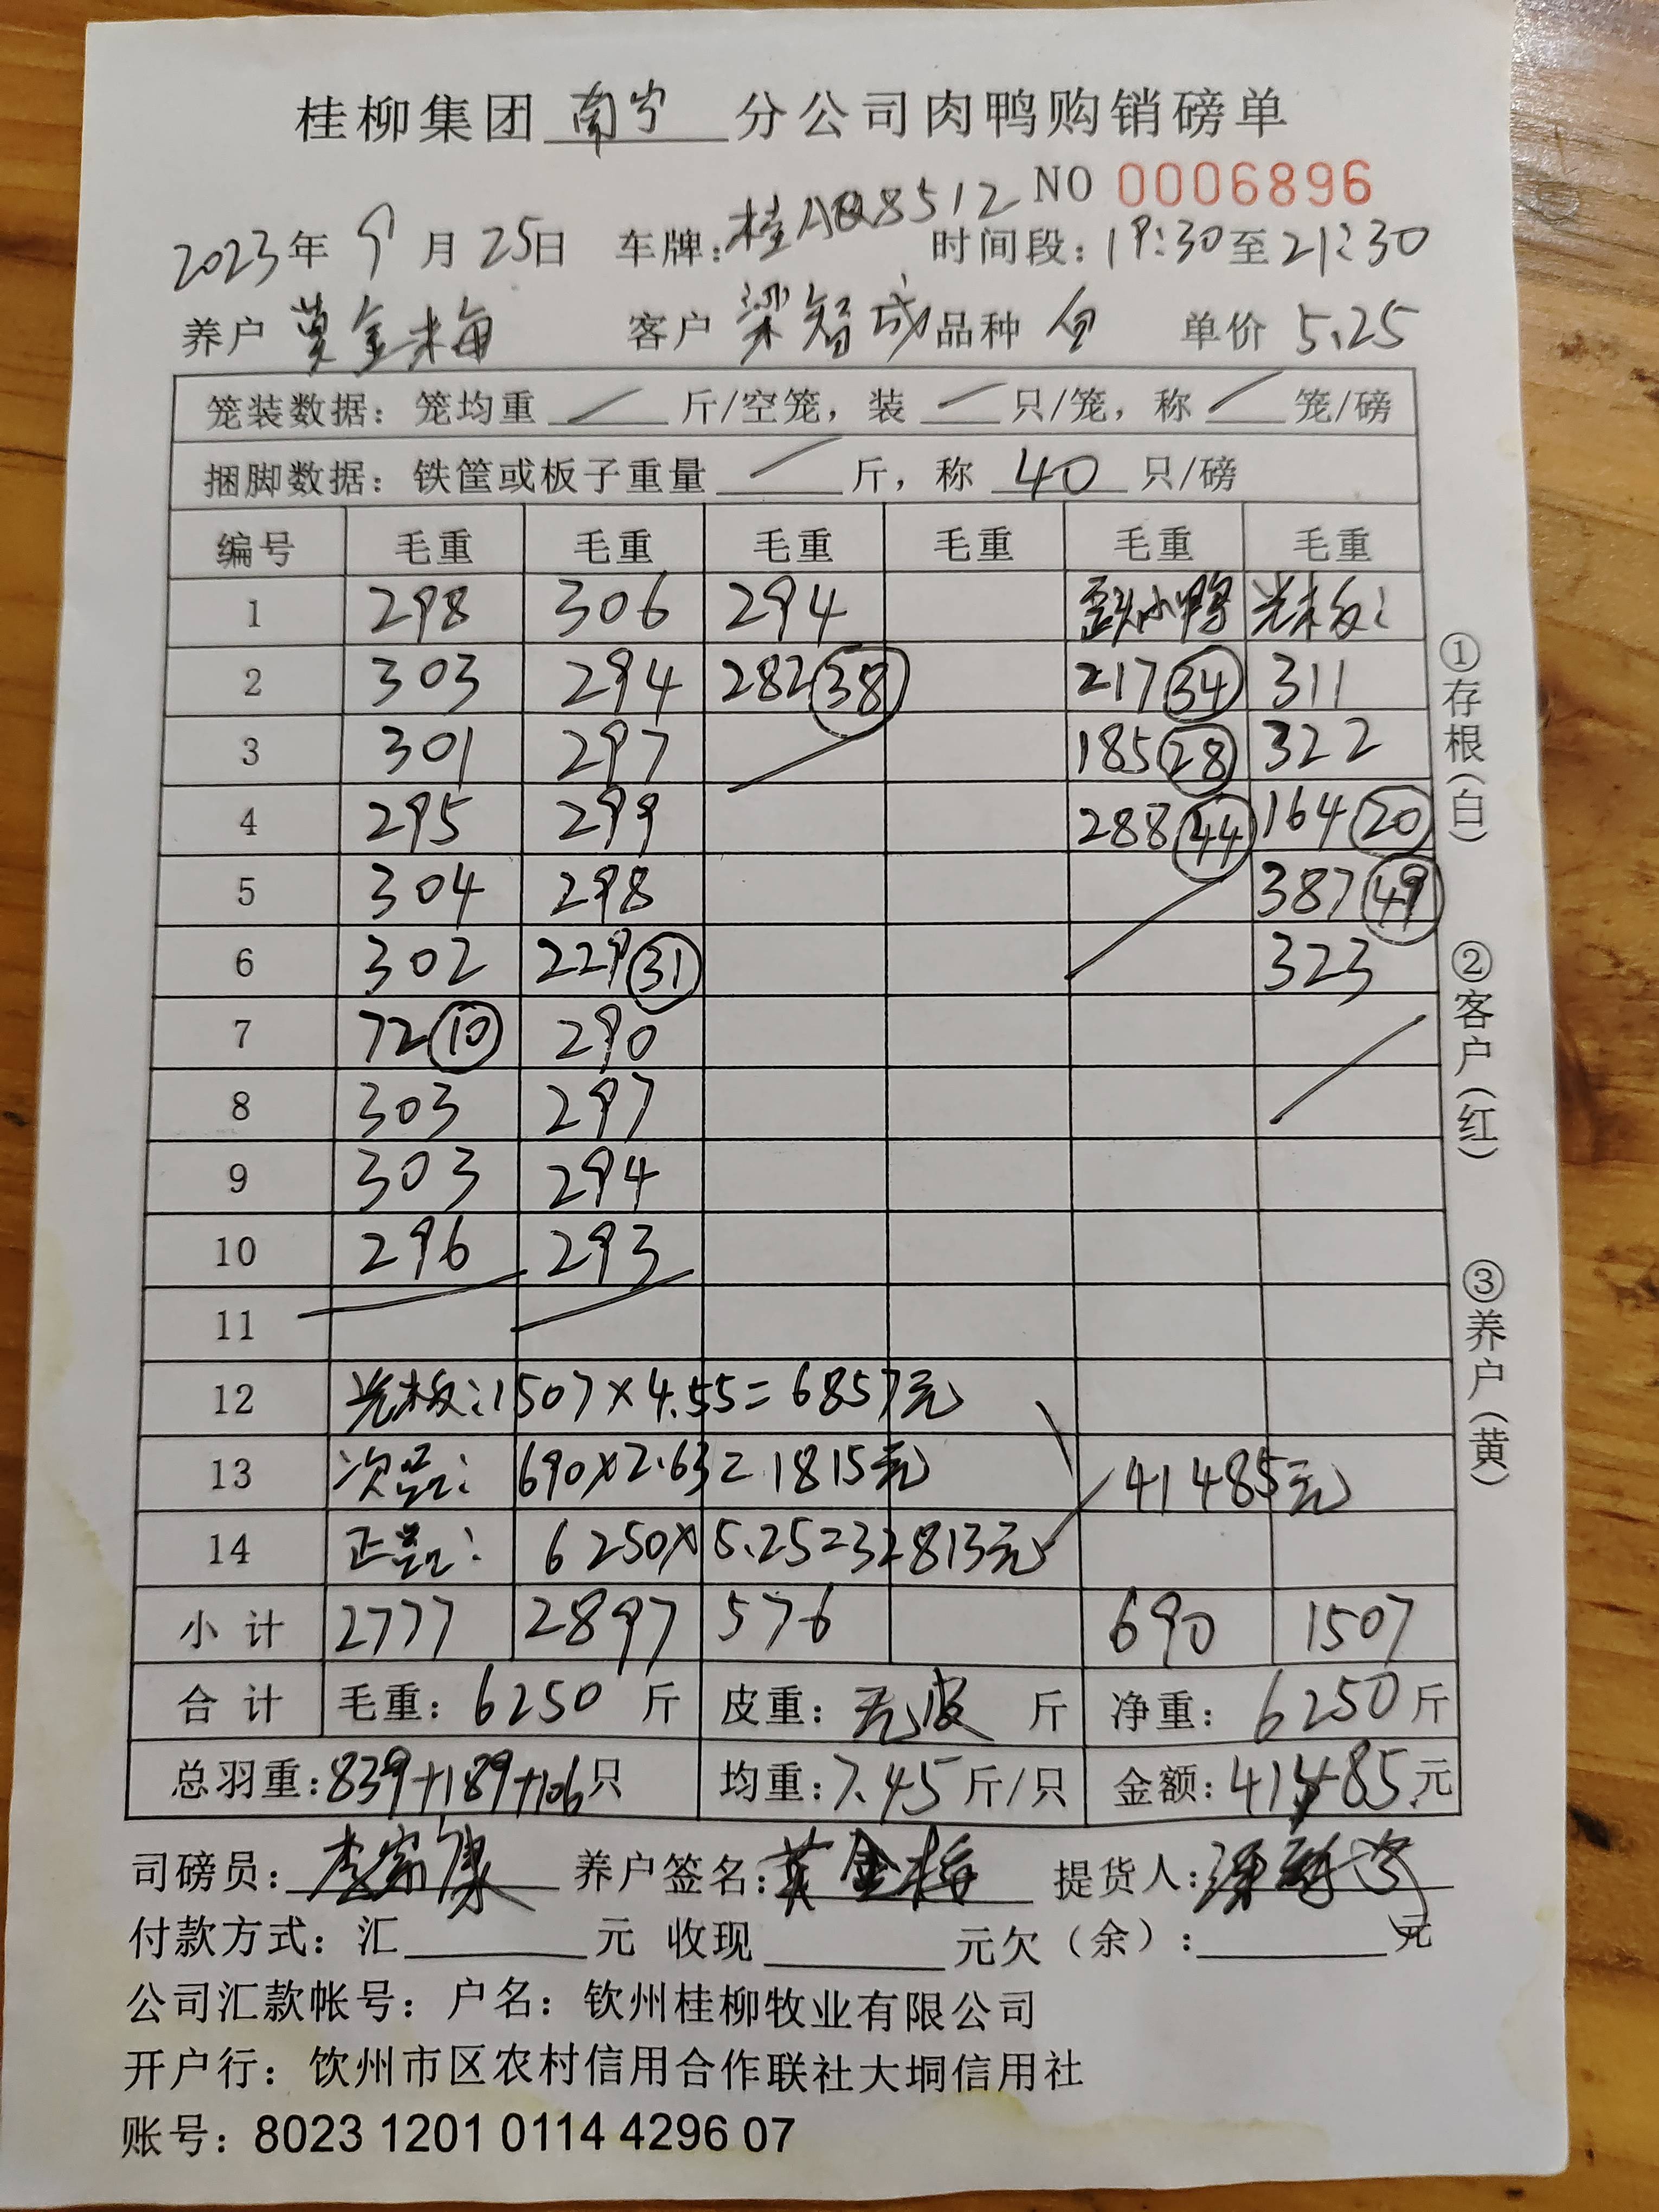 桂柳集团 南宁 分公司肉鸭购销磅单
NO 0006896
2023年 9月 25日 车牌:桂AQ8512 时间段:19:30至21:30
养户 黄金梅 客户 梁智成 品种 白 单价 5.25
笼装数据：笼均重 / 斤/空笼，装 / 只/笼，称 / 笼/磅
捆脚数据：铁筐或板子重量 / 斤，称 40 只/磅
编号 毛重 毛重 毛重 毛重 毛重 毛重
1 298 306 294 歪头小鸭 光板:
2 303 294 282 38 217 34 311
3 301 297 185 28 322
4 295 299 288 44 164 20
5 304 298 387 49
6 302 229 31 323
7 72 10 290
8 303 297
9 303 294
10 296 293
11
12 光板:1507×4.55=6857元
13 次品: 690×2.63=1815元 41485元
14 正品: 6250×5.25=32813元
小计 2777 2897 576 690 1507
合计 毛重：6250 斤 皮重：无皮 斤 净重：6250斤
总羽重:839+189+106只 均重:7.45斤/只 金额:41485元
司磅员: 养户签名:黄金梅 提货人:
付款方式：汇 元 收现 元欠（余）: 元
公司汇款帐号：户名：钦州桂柳牧业有限公司
开户行：饮州市区农村信用合作联社大垌信用社
账号：8023 1201 0114 4296 07
①存根(白)
②客户(红)
③养户(黄)